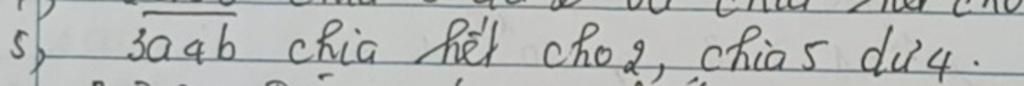 5, 3aab chia hết cho 2, chia 5 dư 4.